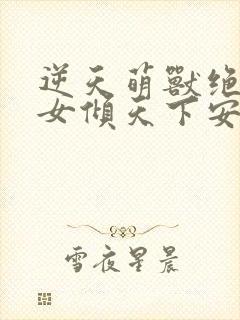 逆天萌獸绝
女傾天下安
雪夜星晨